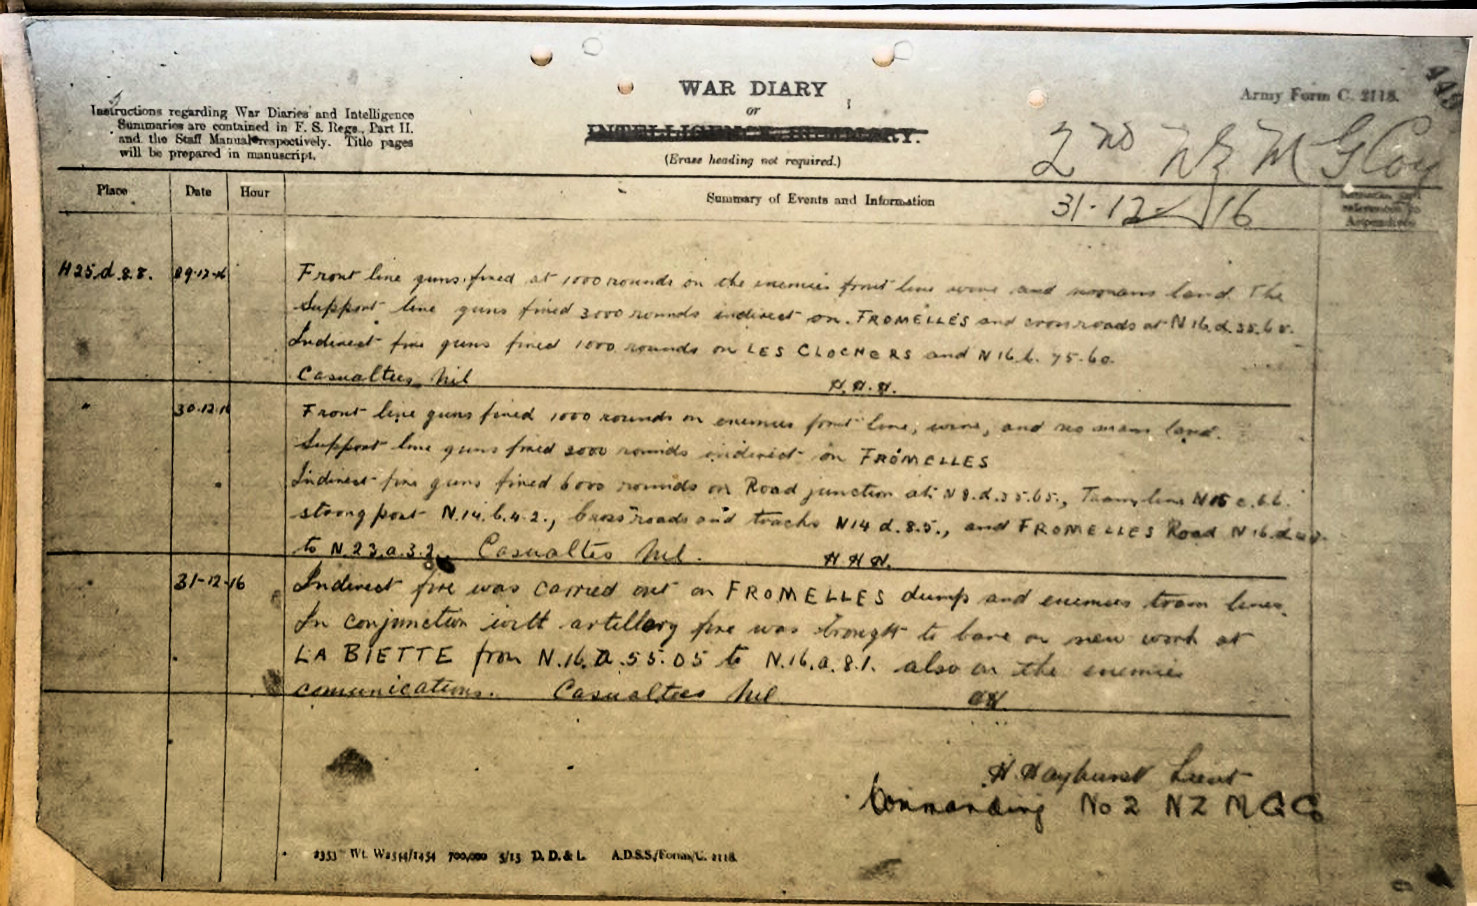 WAR DIARY
or
INTELLIGENCE SUMMARY.
(Erase heading not required.)
Army Form C. 2118.
Instructions regarding War Diaries and Intelligence
Summaries are contained in F. S. Regs., Part II.
and the Staff Manual respectively. Title pages
will be prepared in manuscript.
2nd NZ M G Coy
31-12-16
Place Date Hour Summary of Events and Information
references to
Appendices
H25.d.8.8. 29-12-16 Front line guns fired at 1000 rounds on the enemies front line wire and nomans land. The
Support line guns fired 3000 rounds indirect on FROMELLES and crossroads at N16.d.
Indirect fire guns fired 1000 rounds on LES CLOCHERS and N16.b. 75.60.
Casualties Nil H.H.
" 30-12-16 Front line guns fired 1000 rounds on enemies front line, wire, and no mans land.
Support line guns fired rounds indirect on FROMELLES
Indirect fire guns fired 6000 rounds on Road junction at Tram line
strong post N.14.b.4.2., Cross roads and tracks N14 d.8.5., and FROMELLES Road N16.d.
to N.23.a.3.2. Casualties Nil. H H H.
" 31-12-16 Indirect fire was carried out on FROMELLES dump and enemies tram lines.
In conjunction with artillery fire was brought to bare on new work at
LA BIETTE from N.16.a.55.05 to N.16.a.8.1. also on the enemies
comunications. Casualties Nil HH.
H Hayhurst Lieut
Commanding No 2 NZ M G Co
2353 Wt. W2544/1454 700,000 5/15 D. D. & L. A.D.S.S./Forms/C. 2118.